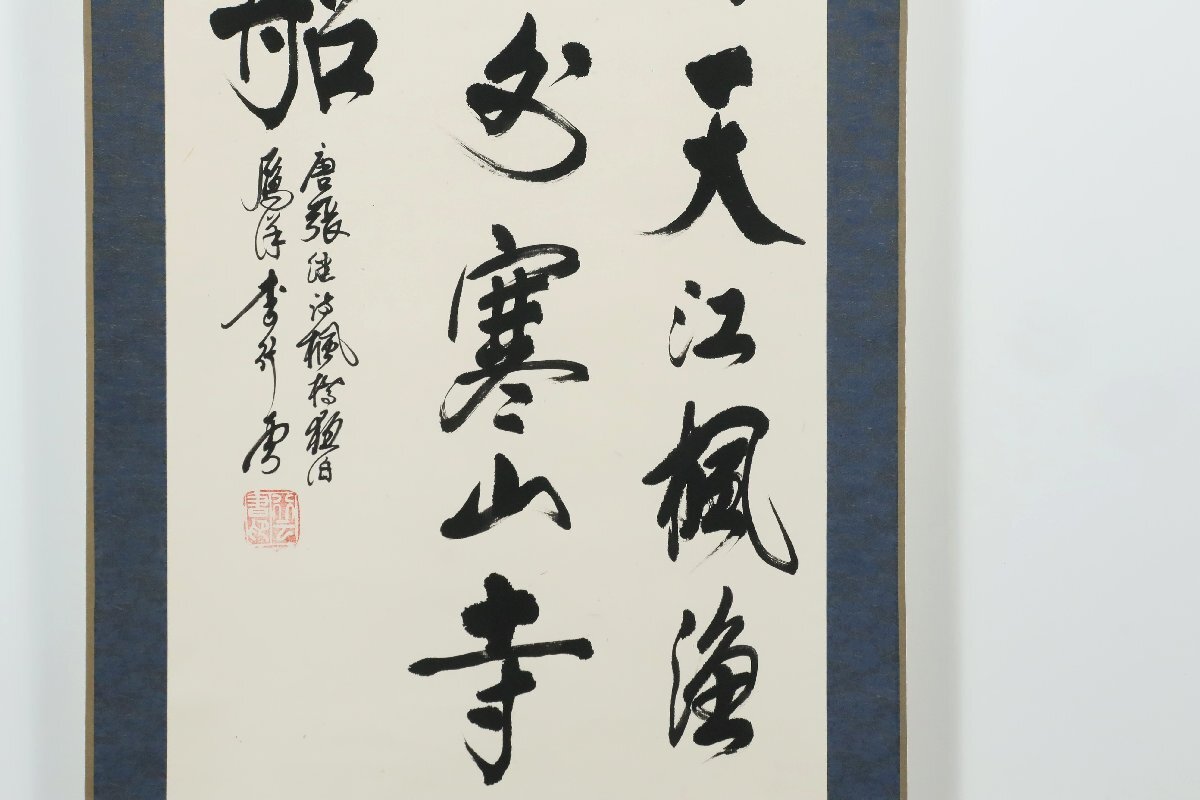 天江楓漁
外寒山寺
船
唐張继诗楓橋夜泊
李